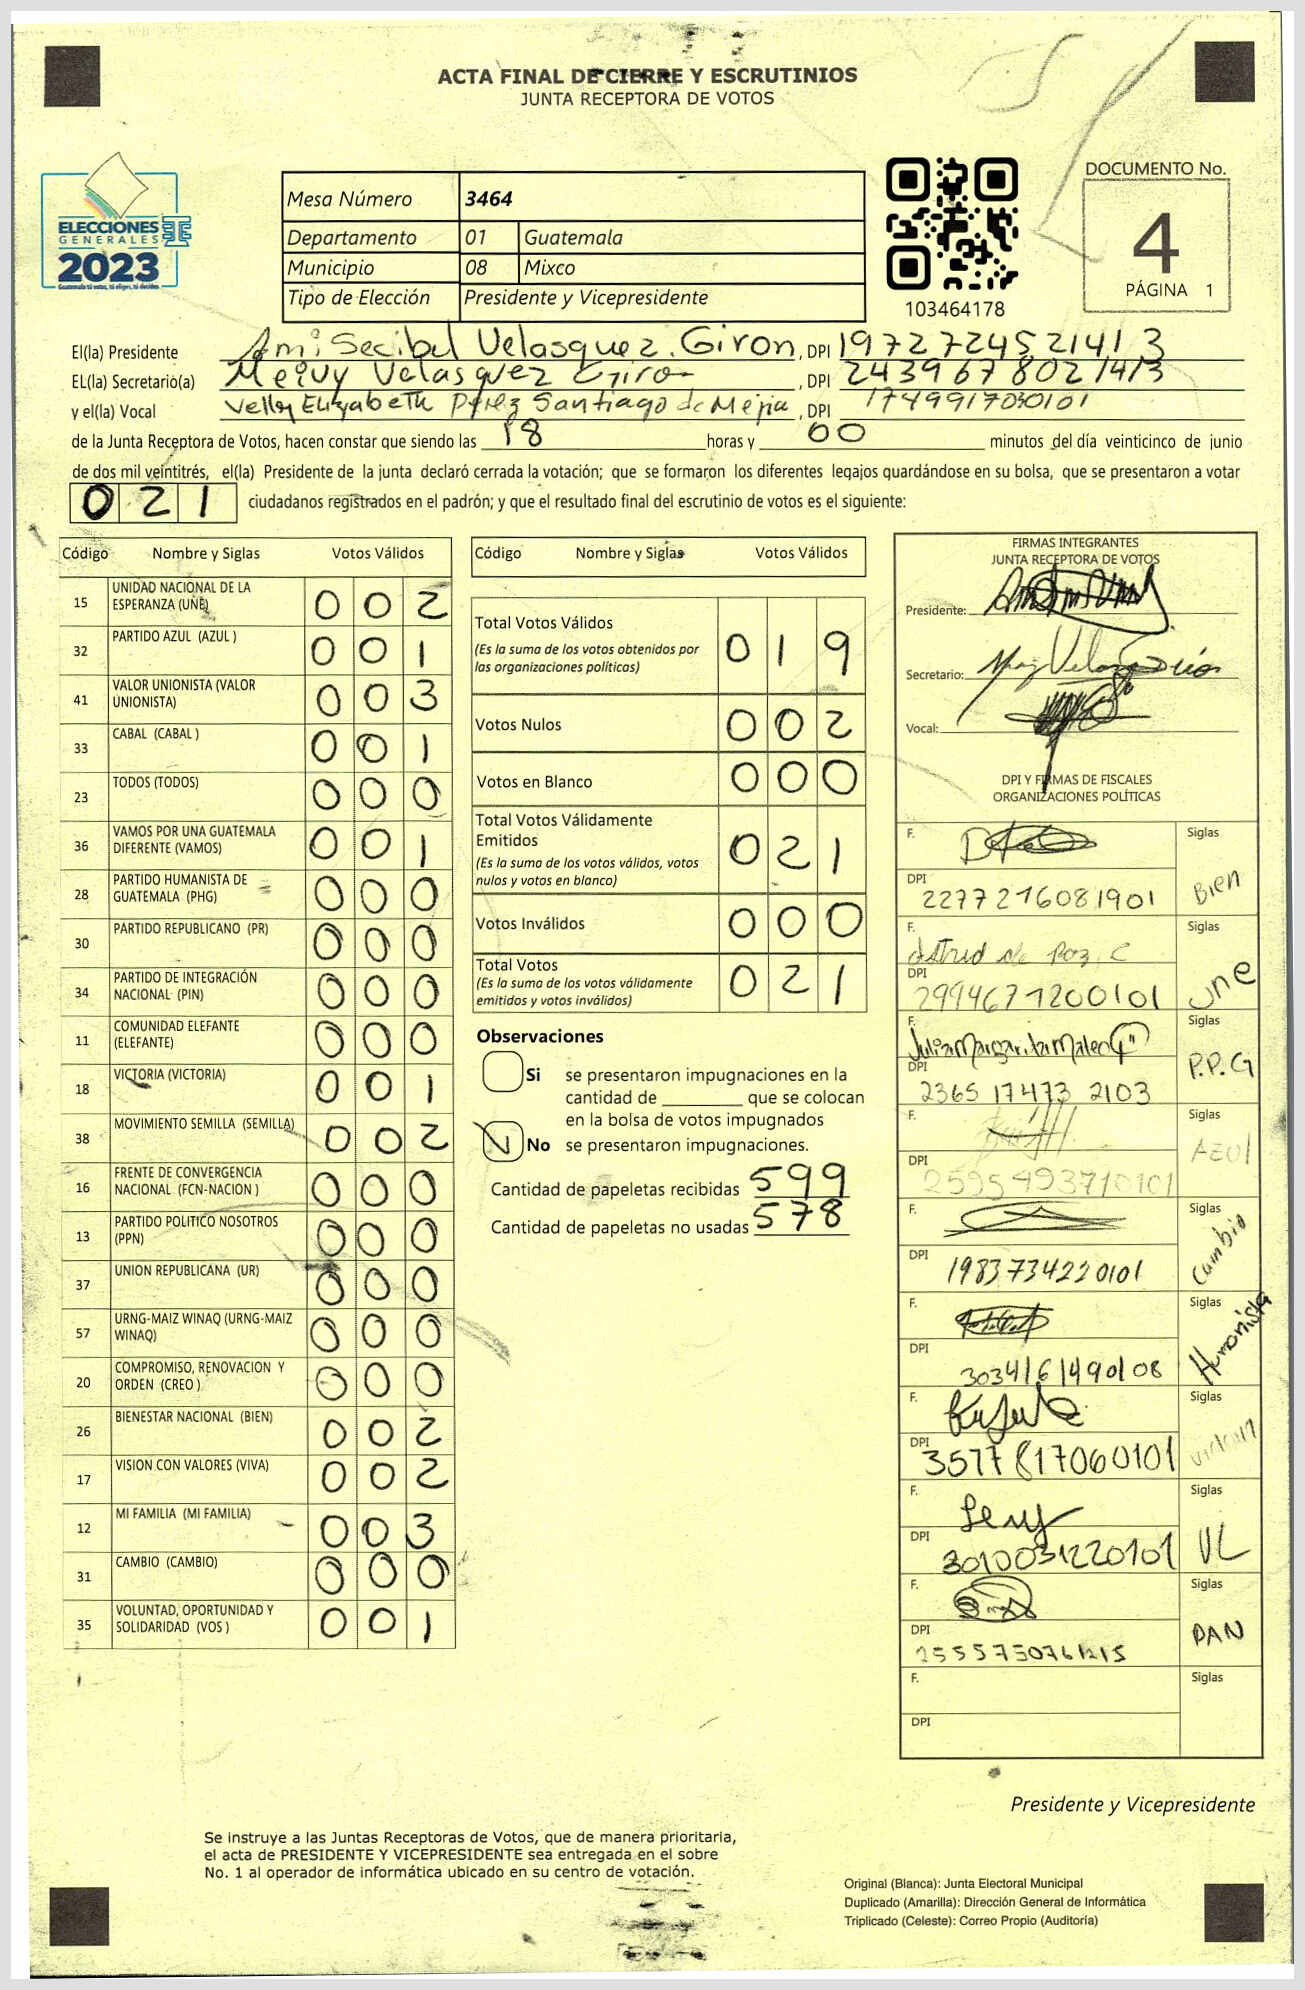 ACTA FINAL DE CIERRE Y ESCRUTINIOS
JUNTA RECEPTORA DE VOTOS
ELECCIONES
GENERALES
2023
Guatemala tú votas, tú eliges, tú decides
Mesa Número 3464
Departamento 01 Guatemala
Municipio 08 Mixco
Tipo de Elección Presidente y Vicepresidente
103464178
DOCUMENTO No.
4
PÁGINA 1
El(la) Presidente Ami Secibel Velasquez Giron, DPI 1972724521413
EL(la) Secretario(a) Meivy Velasquez Giron, DPI 2439678021413
y el(la) Vocal Velly Elizabeth Pérez Santiago de Mejia, DPI 1749917030101
de la Junta Receptora de Votos, hacen constar que siendo las 18 horas y 00 minutos del día veinticinco de junio
de dos mil veintitrés, el(la) Presidente de la junta declaró cerrada la votación; que se formaron los diferentes legajos guardándose en su bolsa, que se presentaron a votar
021 ciudadanos registrados en el padrón; y que el resultado final del escrutinio de votos es el siguiente:
Código Nombre y Siglas Votos Válidos
15 UNIDAD NACIONAL DE LA ESPERANZA (UNE) 0 0 2
32 PARTIDO AZUL (AZUL ) 0 0 1
41 VALOR UNIONISTA (VALOR UNIONISTA) 0 0 3
33 CABAL (CABAL ) 0 0 1
23 TODOS (TODOS) 0 0 0
36 VAMOS POR UNA GUATEMALA DIFERENTE (VAMOS) 0 0 1
28 PARTIDO HUMANISTA DE GUATEMALA (PHG) 0 0 0
30 PARTIDO REPUBLICANO (PR) 0 0 0
34 PARTIDO DE INTEGRACIÓN NACIONAL (PIN) 0 0 0
11 COMUNIDAD ELEFANTE (ELEFANTE) 0 0 0
18 VICTORIA (VICTORIA) 0 0 1
38 MOVIMIENTO SEMILLA (SEMILLA) 0 0 2
16 FRENTE DE CONVERGENCIA NACIONAL (FCN-NACION ) 0 0 0
13 PARTIDO POLITICO NOSOTROS (PPN) 0 0 0
37 UNION REPUBLICANA (UR) 0 0 0
57 URNG-MAIZ WINAQ (URNG-MAIZ WINAQ) 0 0 0
20 COMPROMISO, RENOVACION Y ORDEN (CREO ) 0 0 0
26 BIENESTAR NACIONAL (BIEN) 0 0 2
17 VISION CON VALORES (VIVA) 0 0 2
12 MI FAMILIA (MI FAMILIA) 0 0 3
31 CAMBIO (CAMBIO) 0 0 0
35 VOLUNTAD, OPORTUNIDAD Y SOLIDARIDAD (VOS ) 0 0 1
Código Nombre y Siglas Votos Válidos
Total Votos Válidos 0 1 9
(Es la suma de los votos obtenidos por
las organizaciones políticas)
Votos Nulos 0 0 2
Votos en Blanco 0 0 0
Total Votos Válidamente
Emitidos 0 2 1
(Es la suma de los votos válidos, votos
nulos y votos en blanco)
Votos Inválidos 0 0 0
Total Votos 0 2 1
(Es la suma de los votos válidamente
emitidos y votos inválidos)
Observaciones
Si se presentaron impugnaciones en la
cantidad de ________ que se colocan
en la bolsa de votos impugnados
No se presentaron impugnaciones.
Cantidad de papeletas recibidas 599
Cantidad de papeletas no usadas 578
FIRMAS INTEGRANTES
JUNTA RECEPTORA DE VOTOS
Presidente:
Secretario:
Vocal:
DPI Y FIRMAS DE FISCALES
ORGANIZACIONES POLÍTICAS
F. Siglas
DPI 2277216081901 Bien
F. Astrid de Paz C Siglas
DPI 2994671200101 Une
F. Julia Margarita Mateo G Siglas
DPI 2365 17473 2103 P.P.G
F. Siglas
DPI 2595493710101 AZUl
F. Siglas
DPI 1983734220101 Cambio
F. Siglas
DPI 3034161490108 Humanista
F. Siglas
DPI 3577817060101
F. Siglas
DPI 3010031220101 VL
F. Siglas
DPI 2555750761215 PAN
F. Siglas
DPI
Presidente y Vicepresidente
Se instruye a las Juntas Receptoras de Votos, que de manera prioritaria,
el acta de PRESIDENTE Y VICEPRESIDENTE sea entregada en el sobre
No. 1 al operador de informática ubicado en su centro de votación.
Original (Blanca): Junta Electoral Municipal
Duplicado (Amarilla): Dirección General de Informática
Triplicado (Celeste): Correo Propio (Auditoría)